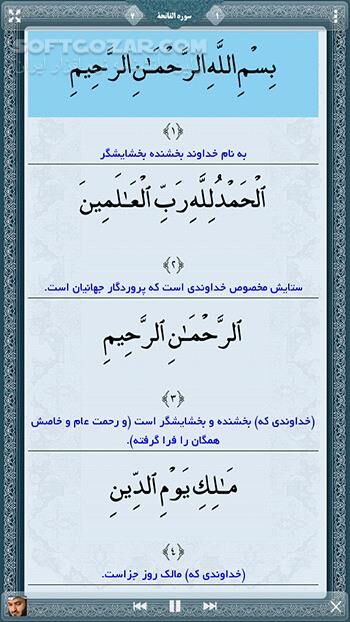 ۱ سوره الفاتحة ۷
SOFTGOZAR.COM
بِسْمِ اللَّهِ الرَّحْمَـٰنِ الرَّحِيمِ
﴿۱﴾
به نام خداوند بخشنده بخشایشگر
اَلْحَمْدُ لِلَّهِ رَبِّ الْعَـٰلَمِينَ
﴿۲﴾
ستایش مخصوص خداوندی است که پروردگار جهانیان است.
اَلرَّحْمَـٰنِ الرَّحِيمِ
﴿۳﴾
(خداوندی که) بخشنده و بخشایشگر است (و رحمت عام و خاصش
همگان را فرا گرفته).
مَـٰلِكِ يَوْمِ الدِّينِ
﴿۴﴾
(خداوندی که) مالک روز جزاست.